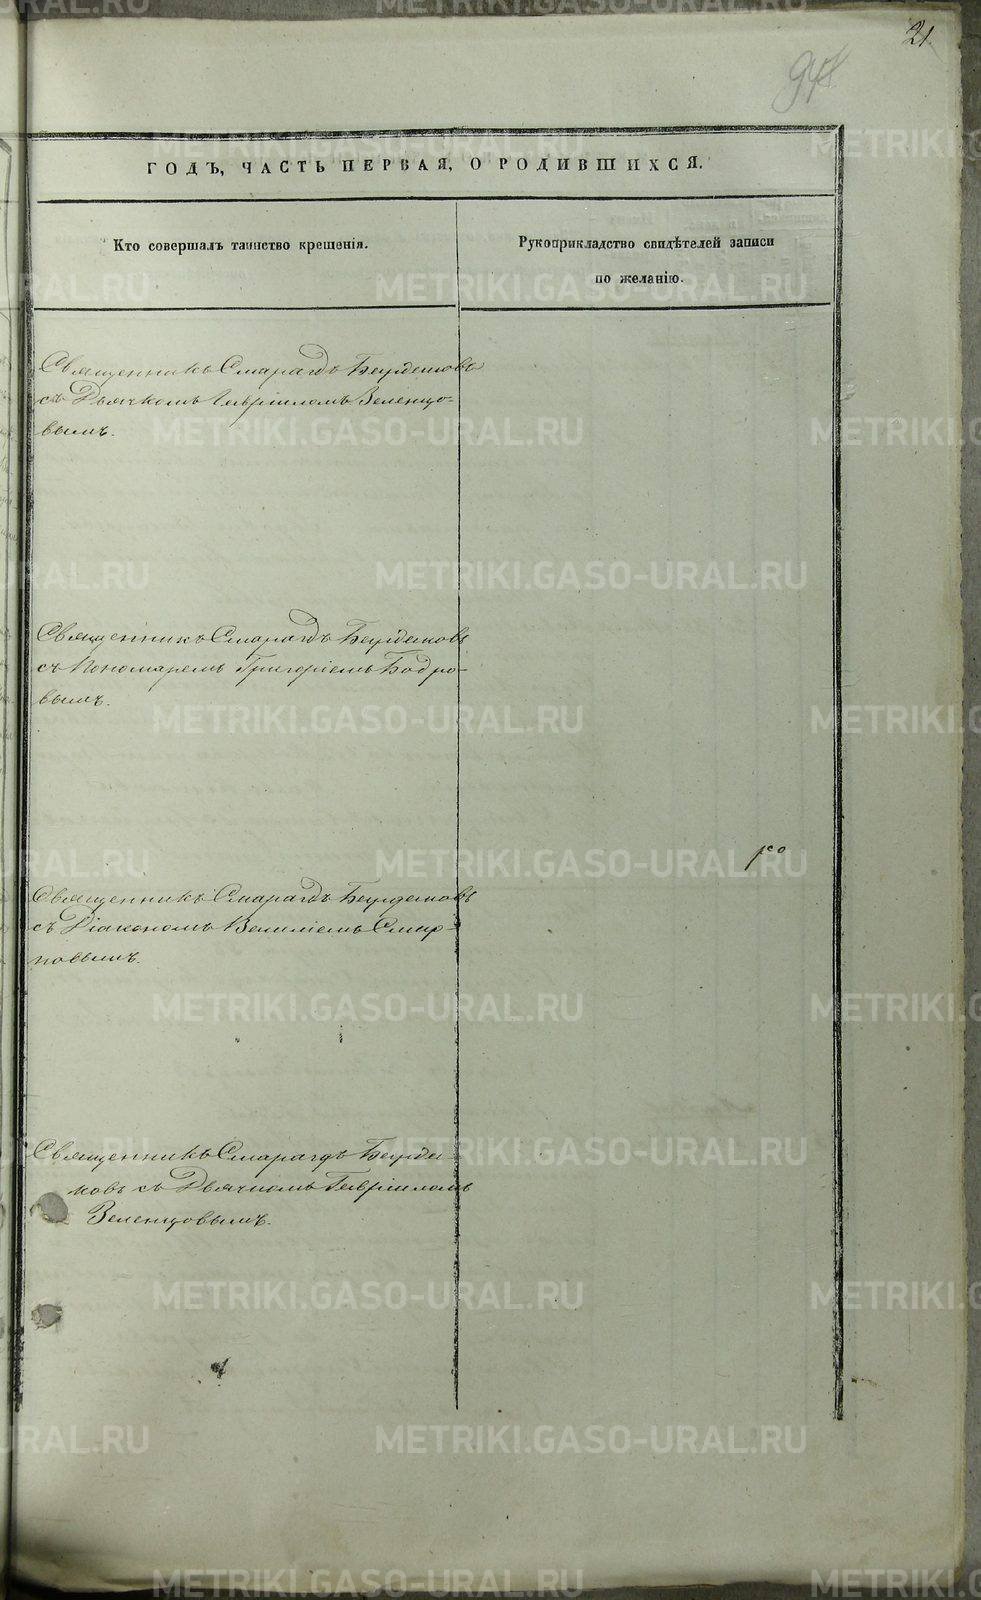 21.
948
ГОДЪ, ЧАСТЬ ПЕРВАЯ, О РОДИВШИХСЯ.
Кто совершалъ таинство крещенія.
Рукоприкладство свидѣтелей записи
по желанію.
Священникъ Смарагдъ Бурдуковъ
съ Дьячкомъ Гавріиломъ Зеленцо-
вымъ.
Священникъ Смарагдъ
съ Пономаремъ Григоріемъ Бодро-
вымъ.
Священникъ Смарагдъ
съ Діакономъ Василіемъ Смир-
новымъ.
Священникъ Смарагдъ
ковъ съ Дьячкомъ Гавріиломъ
Зеленцовымъ.
METRIKI.GASO-URAL.RU